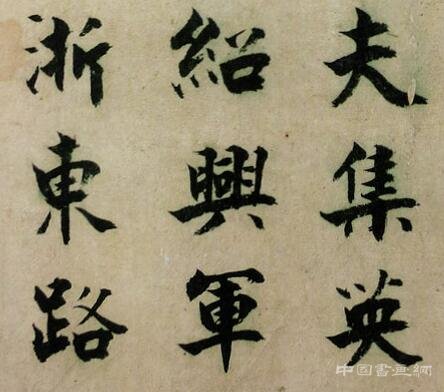 夫集英
紹興軍
浙東路
中国書画網